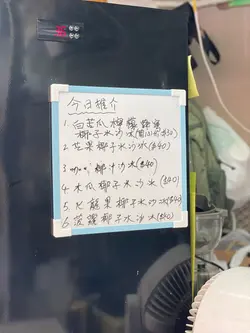 今日推介
1. 白苦瓜檸檬蘋果
椰子水沙冰
2. 芒果椰子水沙冰($40)
3. 椰汁沙冰($40)
4. 木瓜椰子水沙冰($40)
5. 火龍果椰子水沙冰($40)
6. 菠蘿椰子水沙冰($40)